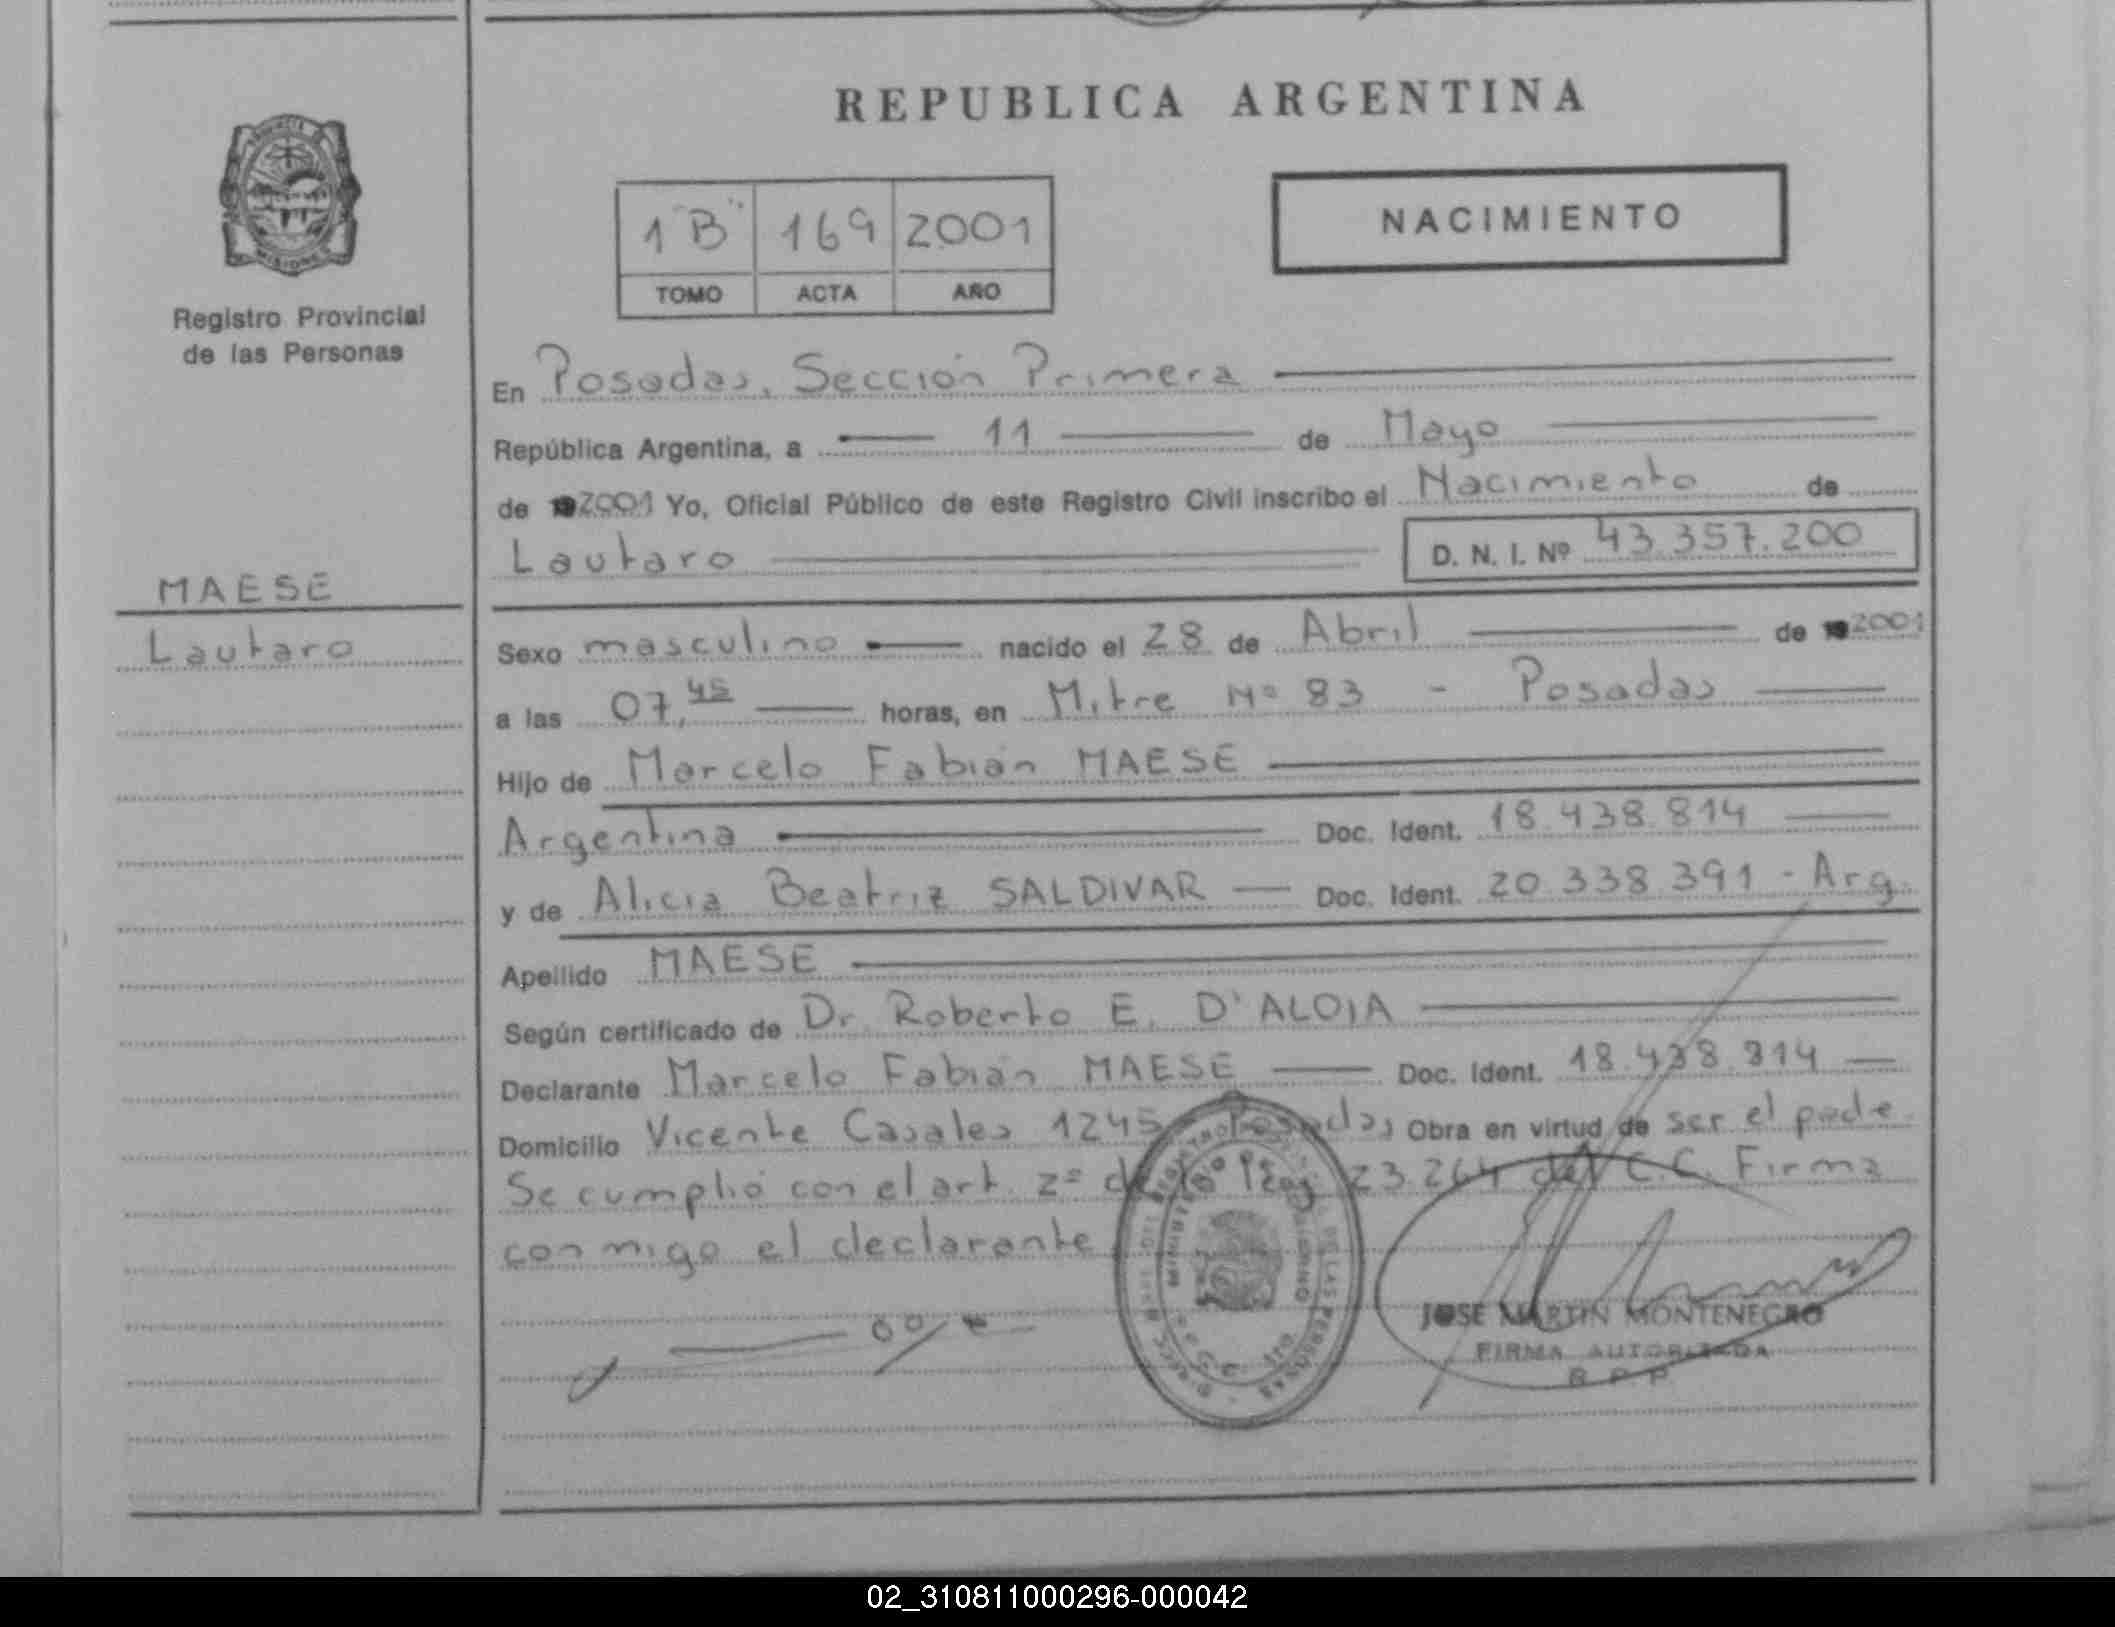 REPUBLICA ARGENTINA
NACIMIENTO
1 "B" 169 2001
TOMO ACTA AÑO
Registro Provincial
de las Personas
MISIONES
En Posadas, Sección Primera
República Argentina, a 11 de Mayo
de 2001 Yo, Oficial Público de este Registro Civil inscribo el Nacimiento de
Lautaro D. N. I. Nº 43.357.200
MAESE
Lautaro
Sexo masculino nacido el 28 de Abril de 2001
a las 07,45 horas, en Mitre Nº 83 - Posadas
Hijo de Marcelo Fabián MAESE
Argentina Doc. Ident. 18.438.814
y de Alicia Beatriz SALDIVAR Doc. Ident. 20.338.391 - Arg.
Apellido MAESE
Según certificado de Dr. Roberto E. D'ALOIA
Declarante Marcelo Fabián MAESE Doc. Ident. 18.438.814
Domicilio Vicente Casales 1245 Posadas Obra en virtud de ser el padre.
Se cumplió con el art. 2º de la ley 23.264 del C.C. Firma
conmigo el declarante
JOSE MARTIN MONTENEGRO
FIRMA AUTORIZADA
R P P
02_310811000296-000042